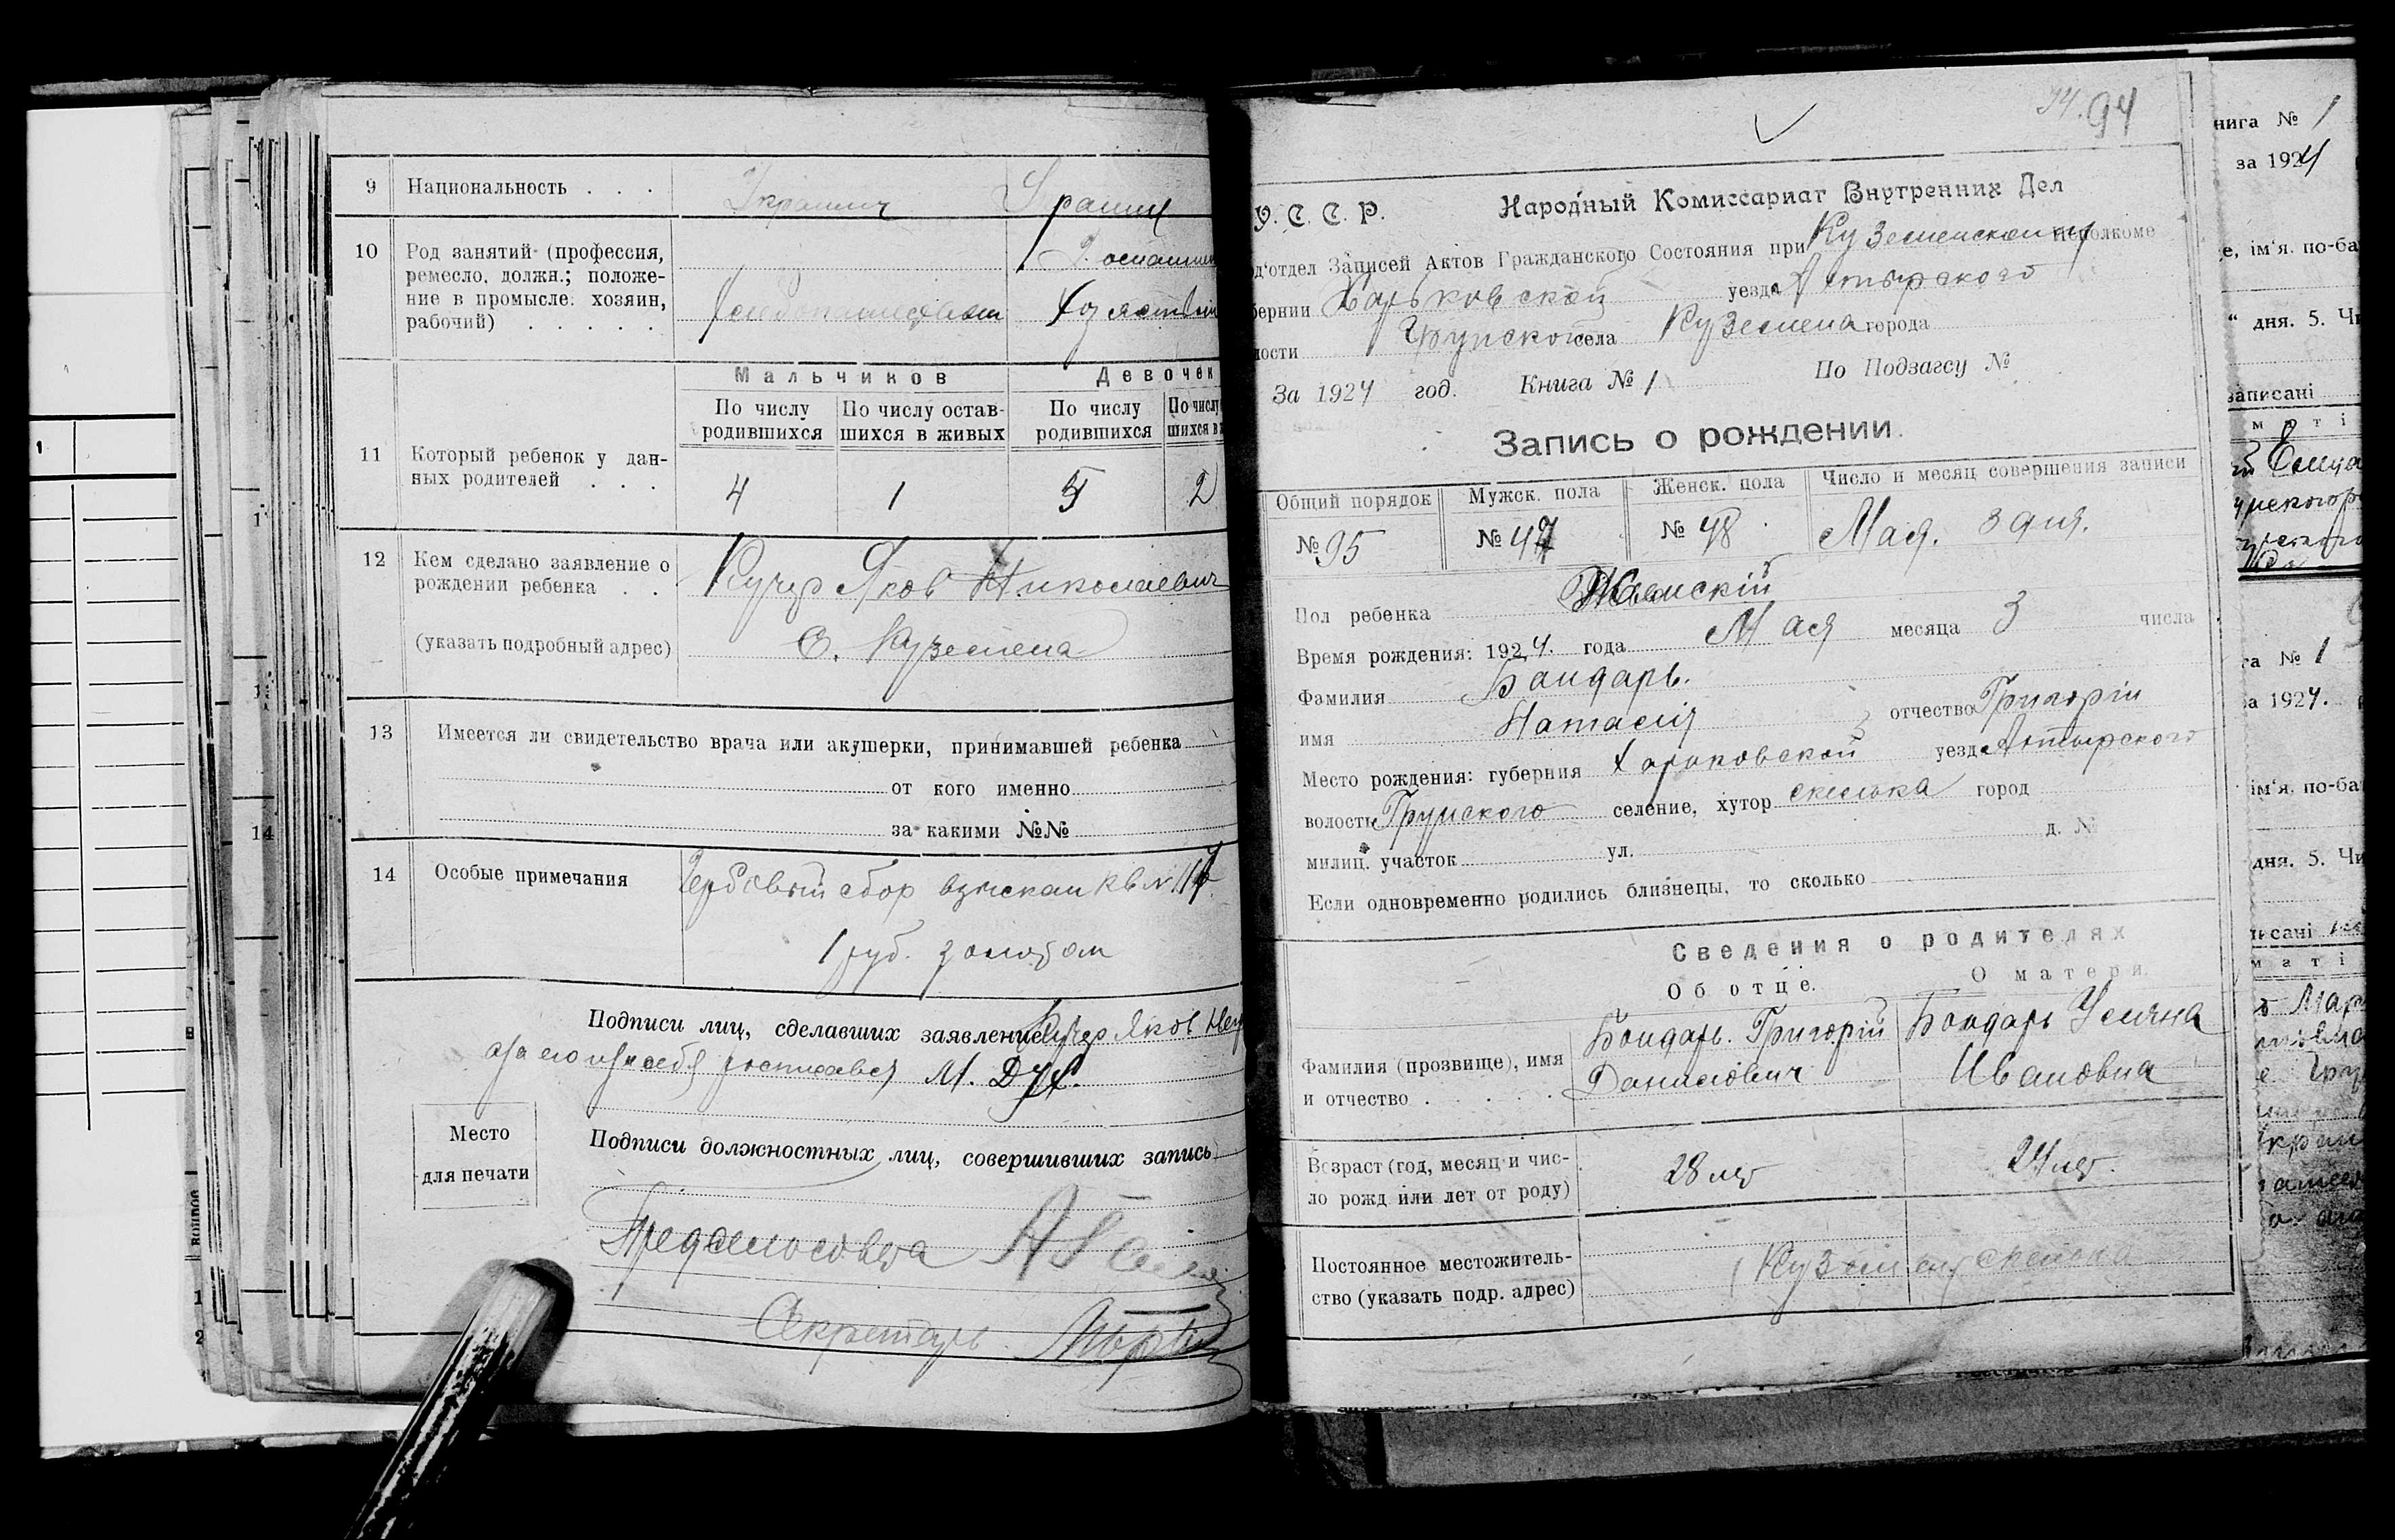 9 Национальность . . .
10 Род занятий (профессия,
ремесло, должн.; положе-
ние в промысле: хозяин,
рабочий) . . . . .
Мальчиков Девочек
По числу родившихся По числу остав-шихся в живых По числу родившихся По числу
11 Который ребенок у дан-
ных родителей . . .
4 1 5 2
12 Кем сделано заявление о
рождении ребенка . .
Кучер Яков Николаевич
(указать подробный адрес)
С. Куземена
13 Имеется ли свидетельство врача или акушерки, принимавшей ребенка
от кого именно
за какими №№
14 Особые примечания
Гербовый сбор взыскан кв №
1 руб. золотом
Подписи лиц, сделавших заявление Кучер Яков
росписався М. Дух.
Место
для печати
Подписи должностных лиц, совершивших запись
Предсельсовета
Секретарь
94. 94
У. С. С. Р. Народный Комиссариат Внутренних Дел
д'отдел Записей Актов Гражданского Состояния при Исполкоме
бернии Харьковской уезда Ахтырского
лости Грунского села Куземена города
За 1924 год. Книга № 1 По Подзагсу №
Запись о рождении.
Общий порядок Мужск. пола Женск. пола Число и месяц совершения записи
№ 95 № 47 № 48 Мая. 3 дня.
Пол ребенка Женскій
Время рождения: 1924. года Мая месяца 3 числа
Фамилия Бондарь.
имя Наталія отчество Григорій
Место рождения: губерния Харьковской уезда Ахтырского
волость Грунского селение, хутор скелька город
милиц. участок ул. д. №
Если одновременно родились близнецы, то сколько
Сведения о родителях
Об отце. О матери.
Фамилия (прозвище), имя
и отчество . . . . .
Бондарь. Григорій Бондарь Ульяна
Данилович Ивановна
Возраст (год, месяц и чис-
ло рожд или лет от роду)
28 лет 24 лет.
Постоянное местожитель-
ство (указать подр. адрес)
нига № 1
за 1924
е, ім'я. по-ба
" дня. 5. Чи
записані
м а т і
га № 1
за 1924.
ім'я, по-ба
дня. 5. Чи
писані
м а т і